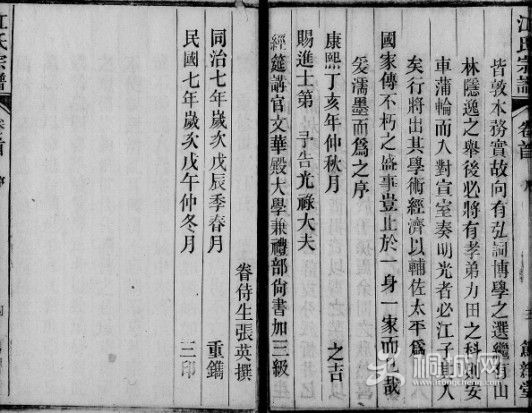 江氏宗譜
卷首
皆敦本務實故向有弘詞博學之選繼有山
林隱逸之舉後必將有孝弟力田之科則安
車蒲輪而入對宣室奏明光者必江子其人
矣行將出其學術經濟以輔佐太平爲
國家傳不朽之盛事豈止於一身一家而已哉
爰濡墨而爲之序
康熙丁亥年仲秋月 之吉
賜進士第 予告光祿大夫
經筵講官文華殿大學士兼禮部尚書加三級
眷侍生張英撰
同治七年歲次戊辰季春月 重鐫
民國七年歲次戊午仲冬月 三印
江氏宗譜
卷首
序
桐城网
itongcheng.com